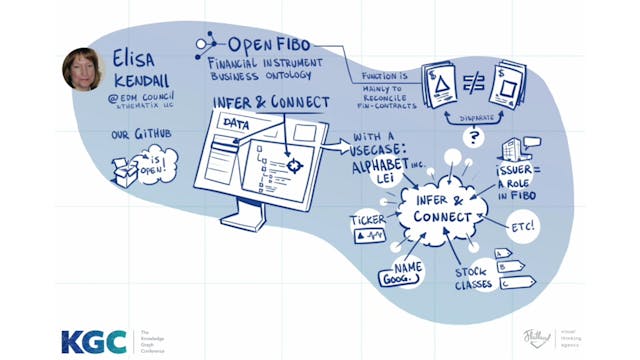 Elisa
KENDALL
@EDM COUNCIL
& THEMATIX LLC
OUR GITHUB
IS
OPEN!
OPEN FIBO
FINANCIAL INSTRUMENT
BUSINESS ONTOLOGY
INFER & CONNECT
DATA
FUNCTION IS
MAINLY TO
RECONCILE
FIN-CONTRACTS
$
$
DISPARATE
?
WITH A
USECASE:
ALPHABET INC.
LEI
ISSUER =
A ROLE
IN FIBO
INFER &
CONNECT
TICKER
ETC!
NAME
GOOG.
STOCK
CLASSES
A
B
C
KGC
The
Knowledge
Graph
Conference
visual
thinking
agency